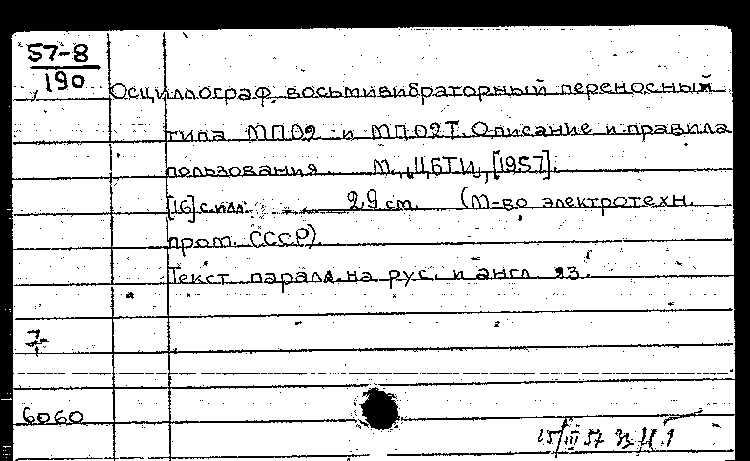 57-8
190
Осциллограф восьмивибраторный переносный
типа МПО2 и МПО2Т. Описание и правила
пользования. М., ЦБТИ, [1957].
[16] с. илл. 29 см. (М-во электротехн.
пром. СССР).
Текст паралл. на рус. и англ яз.
7
6060
15/III 57